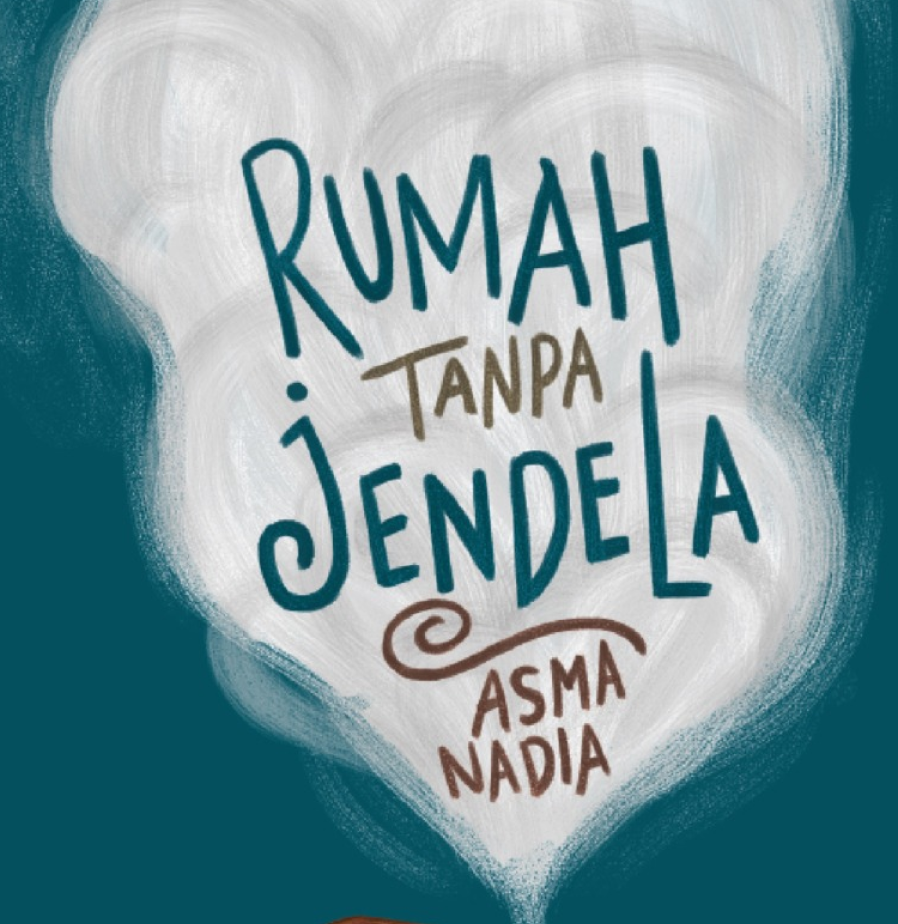 RUMAH
TANPA
jENDELA
ASMA
NADIA